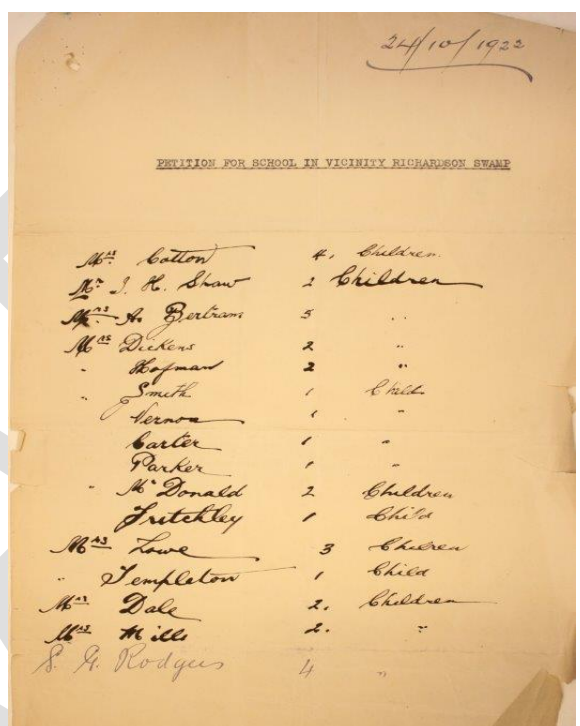 24/10/1922
PETITION FOR SCHOOL IN VICINITY RICHARDSON SWAMP
Mrs. Cotton 4. Children.
Mr J. H. Shaw 2 Children
Mrs A. Bertram 5 "
Mrs Dickens 2 "
" Hofman 2 "
" Smith 1 Child
Vernon 1 "
Carter 1 "
Parker 1 "
" McDonald 2 Children
Fritchley 1 Child
Mrs Lowe 3 Children
" Templeton 1 Child
Mrs Dale 2. Children
Mrs Mills 2. "
S. G. Rodgers 4 "